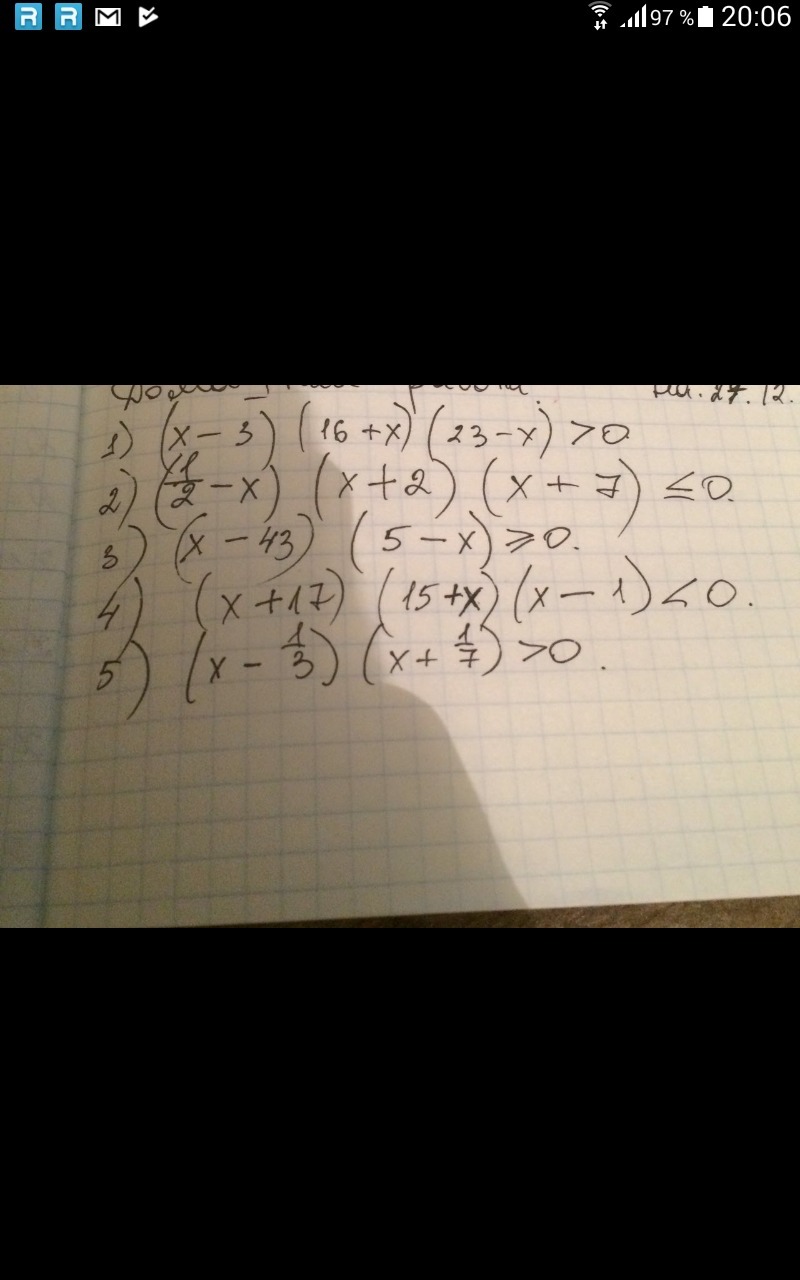 97 % 20:06
на. 27.12.
1) (x - 3) (16 + x) (23 - x) > 0
2) (1/2 - x) (x + 2) (x + 7) ≤ 0.
3) (x - 43) (5 - x) ⩾ 0.
4) (x + 17) (15 + x) (x - 1) < 0.
5) (x - 1/3) (x + 1/7) > 0.